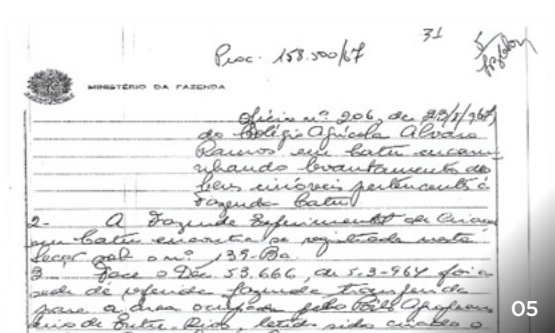 31
Proc. 158.500/67
MINISTÉRIO DA FAZENDA
Ofício nº 206, de 22/5/967,
do Colégio Agrícola Alvaro
Ramos em Catu encami-
nhando levantamento dos
bens imóveis pertencente à
Fazenda Catu
2- A Fazenda Experimental de Criação
em Catu encontra-se registrada nesta
secar sob o nº 139-Ba.
3- Face o Dec. 53.666, de 5-3-964 foi a
sede da referida fazenda transferida
para a área ocupada pelo
de Entre Rios, tendo sido
05